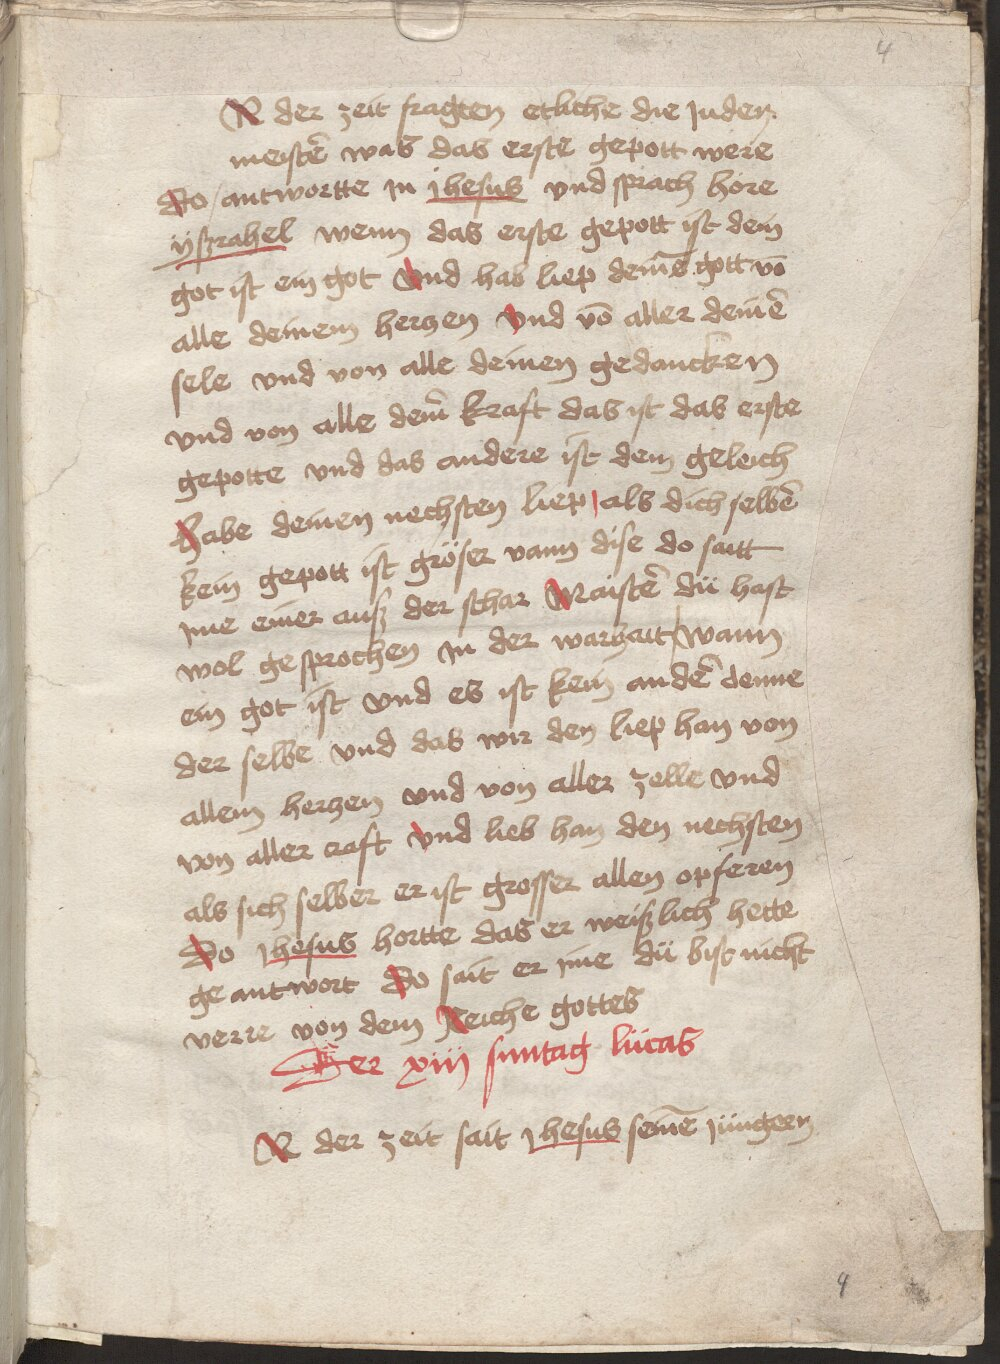 4
N der zeit fragten etliche die Juden
meistē was das erste gepott were
Do antwortte in jhesus vnd sprach höre
ÿszrahel wenn das erste gepott ist dein
got ist ein got Vnd hab liep deinē gott võ
alle deinem herczen Vnd võ aller deinē
sele vnd von alle deinen gedancken
vnd von alle dein̄ kraft das ist das erste
gepotte vnd das andere ist dem geleich
Habe deinen nechsten liep als dich selbē
kein gepott ist gröser wann dise do saitt
ime einer ausz der schar Maistē dü hast
wol gesprochen in der warhait wann
ein got ist vnd es ist kein andē denne
der selbe vnd das wir den liep han von
allem herczen vnd von aller zelle vnd
von aller craft vnd lieb han den nechsten
als sich selber er ist grosser allen opferen
Do jhesus hortte das er weiszlich hette
geantwort Do sait er ime dü bist nicht
verre von dem Reiche gottes
Der xiij suntag lücas
N der zeit sait jhesus seinē jüngern
4